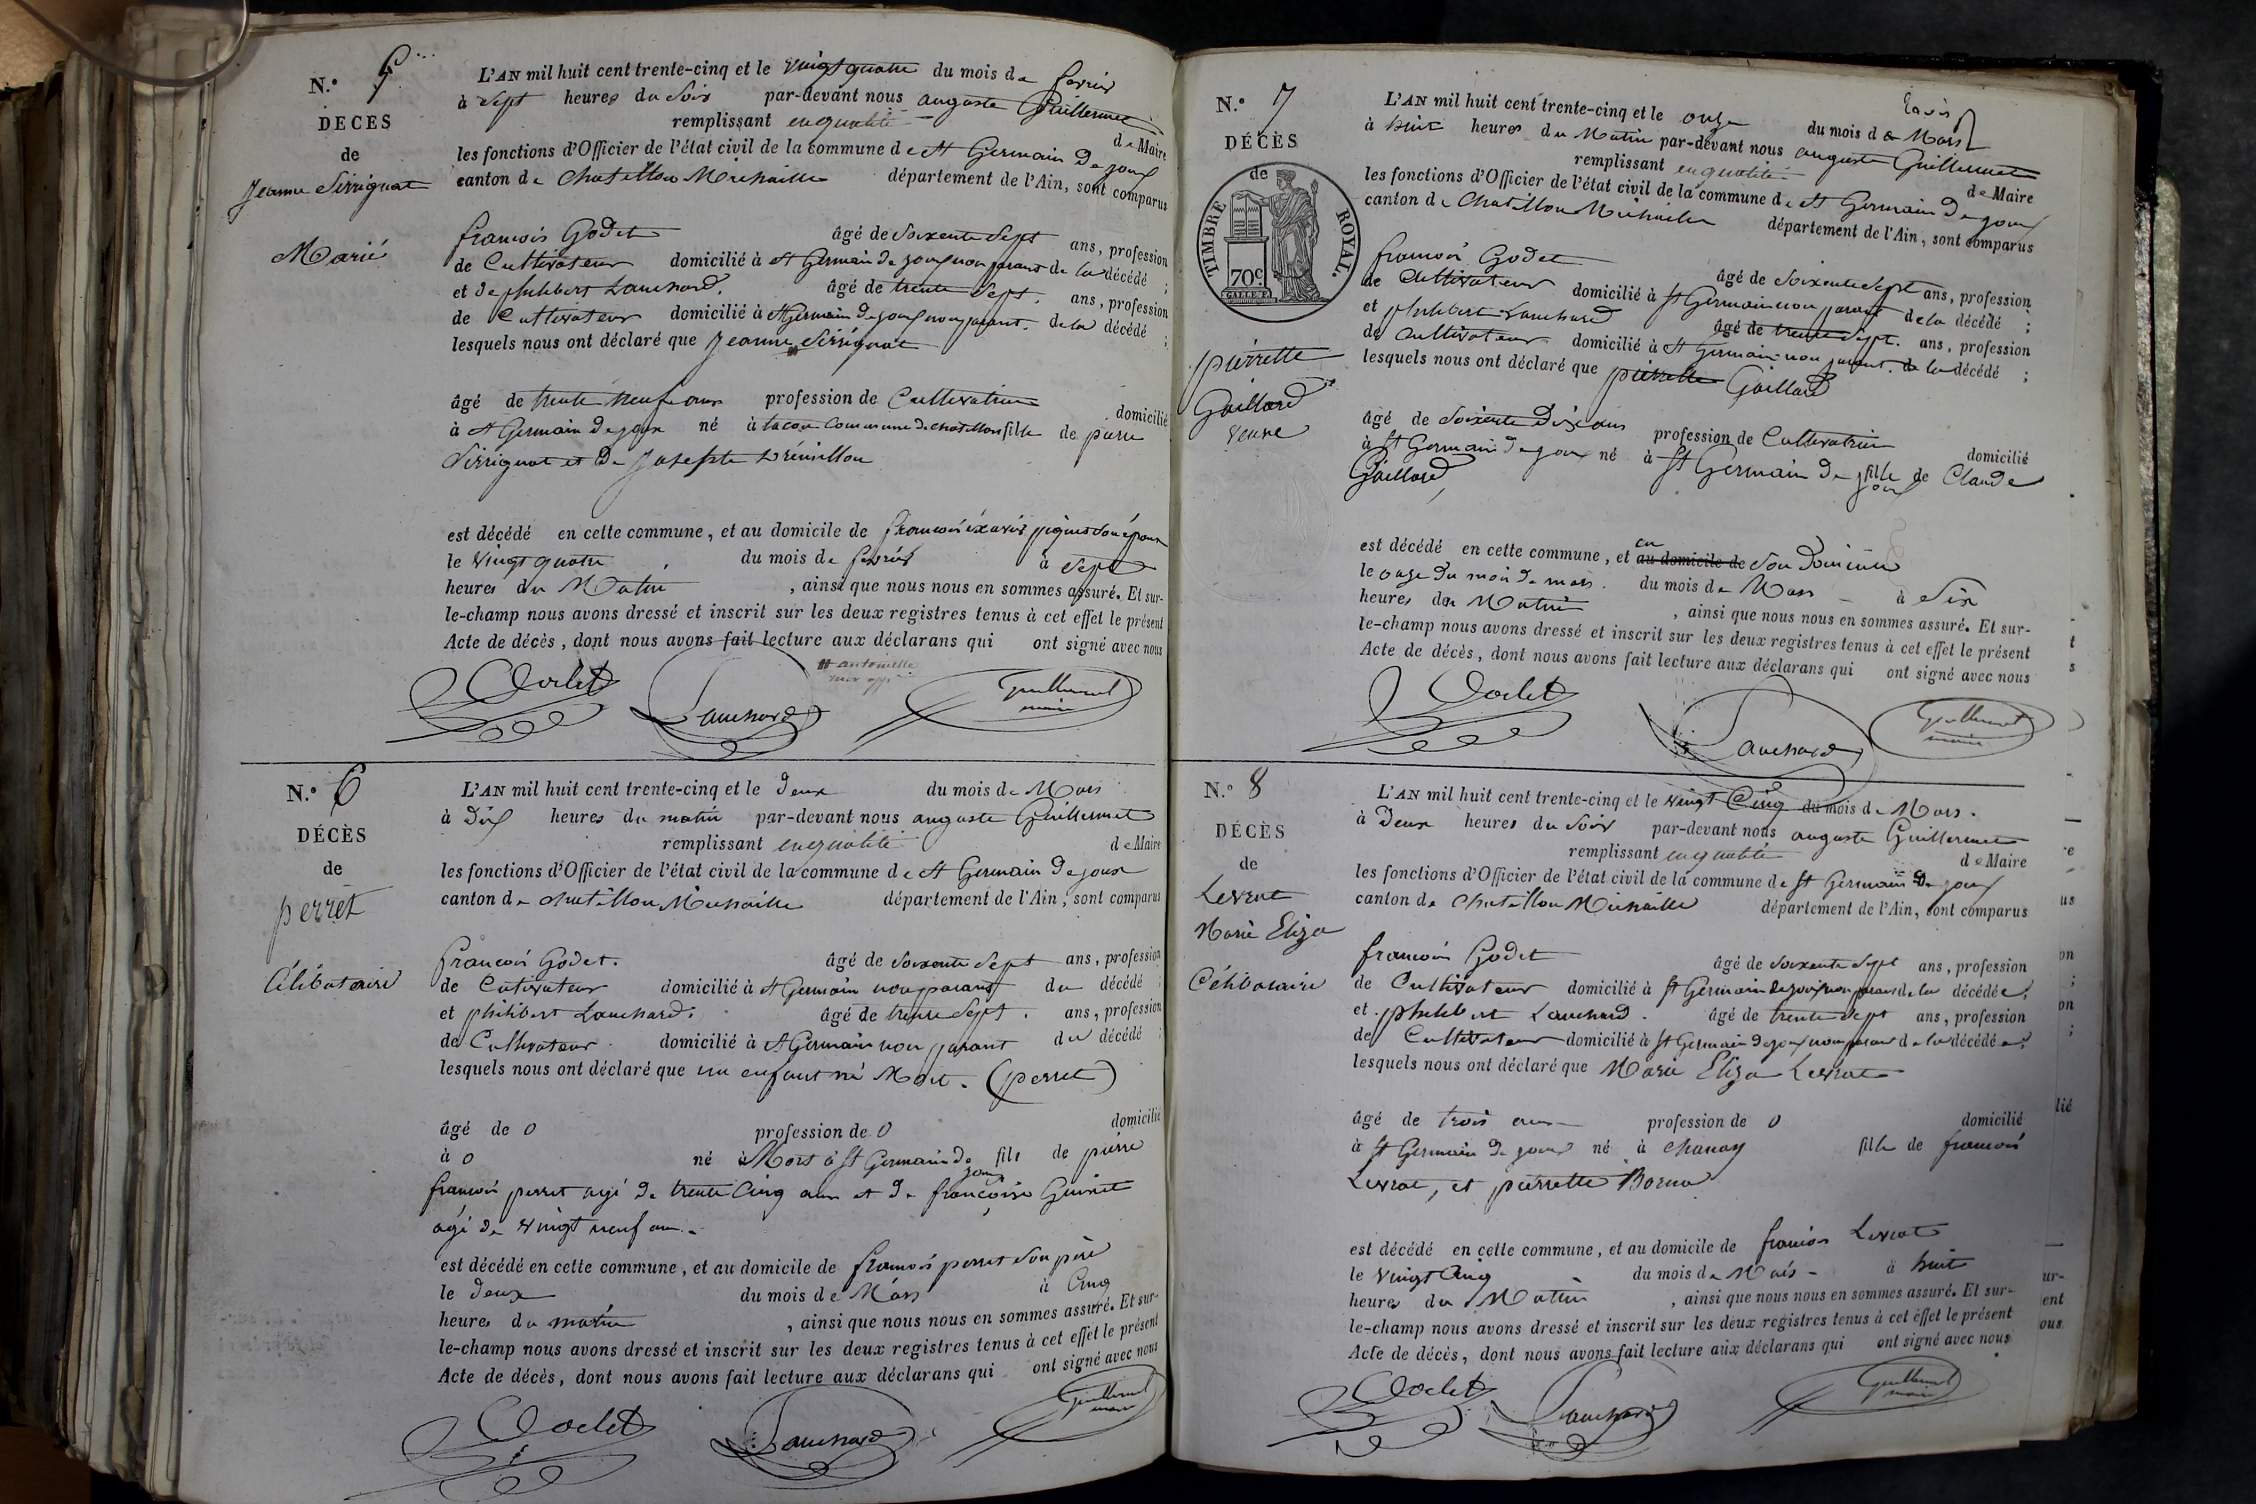 N.° 5
DÉCÈS
de
Jeanne Sérrignat
Marié
L'AN mil huit cent trente-cinq et le vingt quatre du mois de fevrier
à sept heures du soir par-devant nous auguste Guillermet
remplissant en qualité de Maire
les fonctions d'Officier de l'état civil de la commune de St Germain de joux
canton de Chatillon Michaille département de l'Ain, sont comparus
francois Godet âgé de soixente sept ans, profession
de Cultivateur domicilié à St Germain de joux non parant de la décédé ;
et de philibert Lauchard. âgé de trente sept. ans, profession
de Cultivateur domicilié à St Germain de joux non parant. de la décédé ;
lesquels nous ont déclaré que Jeanne Sérrignat
âgé de trente neuf ans profession de Cultivatrice domicilié
à St Germain de joux né à tacon Commune de chatillon fille de pierre
Sérrignat et de Josephte
est décédé en cette commune, et au domicile de francois éxavié son époux
le vingt quatre du mois de fevrier à sept
heures du Matin , ainsi que nous nous en sommes assuré. Et sur-
le-champ nous avons dressé et inscrit sur les deux registres tenus à cet effet le présent
Acte de décès, dont nous avons fait lecture aux déclarans qui ont signé avec nous
# antoinette
Godet Lauchard Guillermet
maire
N.° 6
DÉCÈS
de
perret
Célibataire
L'AN mil huit cent trente-cinq et le deux du mois de Mars
à dix heures du matin par-devant nous auguste Guillermet
remplissant en qualité de Maire
les fonctions d'Officier de l'état civil de la commune de St Germain de joux
canton de chatillon Michaille département de l'Ain, sont comparus
francois Godet. âgé de soixente sept ans, profession
de Cutivateur domicilié à St Germain non parant du décédé ;
et philibert Lauchard. âgé de trente sept. ans, profession
de Cultivateur. domicilié à St Germain non parant du décédé ;
lesquels nous ont déclaré que un enfant né Mort. (perret)
âgé de 0 profession de 0 domicilié
à 0 né à Mort à St Germain de joux fils de pierre
francois perret agé de trente Cinq ans et de francoise Guinet
agé de vingt neuf ans.
est décédé en cette commune, et au domicile de francois perret son père
le deux du mois de Mars à Cinq
heures du matin , ainsi que nous nous en sommes assuré. Et sur-
le-champ nous avons dressé et inscrit sur les deux registres tenus à cet effet le présent
Acte de décès, dont nous avons fait lecture aux déclarans qui ont signé avec nous
Godet Lauchard Guillermet
maire
N.° 7
DÉCÈS
de
TIMBRE ROYAL.
70c
pierrette
Gaillard
veuve
L'AN mil huit cent trente-cinq et le onze du mois de Mars
à huit heures du Matin par-devant nous auguste Guillermet
remplissant en qualité de Maire
les fonctions d'Officier de l'état civil de la commune de St Germain de joux
canton de Chatillon Michaille département de l'Ain, sont comparus
francois Godet âgé de soixente sept ans, profession
de Cultivateur domicilié à St Germain non parant de la décédé ;
et philibert Lauchard âgé de trente sept. ans, profession
de Cultivateur domicilié à St Germain non parant. de la décédé ;
lesquels nous ont déclaré que pierrette Gaillard
âgé de soixente dix ans profession de Cultivatrice domicilié
à St Germain de joux né à St Germain de joux fille de Claude
Gaillard,
est décédé en cette commune, et en au domicile de son domicile
le onze du mois de mars. du mois de Mars à Six
heures du Matin , ainsi que nous nous en sommes assuré. Et sur-
le-champ nous avons dressé et inscrit sur les deux registres tenus à cet effet le présent
Acte de décès, dont nous avons fait lecture aux déclarans qui ont signé avec nous
Godet Lauchard Guillermet
maire
N.° 8
DÉCÈS
de
Levrat
Marie Eliza
Célibataire
L'AN mil huit cent trente-cinq et le vingt Cinq du mois de Mars.
à Deux heures du soir par-devant nous auguste Guillermet
remplissant en qualité de Maire
les fonctions d'Officier de l'état civil de la commune de St Germain de joux
canton de Chatillon Michaille département de l'Ain, sont comparus
francois Godet âgé de soixente sept ans, profession
de Cultivateur domicilié à St Germain de joux non parant de la décédée ;
et philibert Lauchard. âgé de trente sept ans, profession
de Cultivateur domicilié à St Germain de joux non parant de la décédée ;
lesquels nous ont déclaré que Marie Eliza Levrat
âgé de trois ans profession de 0 domicilié
à St Germain de joux né à Chanay fille de francois
Levrat, et pierrette Borna
est décédé en cette commune, et au domicile de francois Levrat
le vingt Cinq du mois de Mars à huit
heures du Matin , ainsi que nous nous en sommes assuré. Et sur-
le-champ nous avons dressé et inscrit sur les deux registres tenus à cet effet le présent
Acte de décès, dont nous avons fait lecture aux déclarans qui ont signé avec nous
Godet Lauchard Guillermet
maire